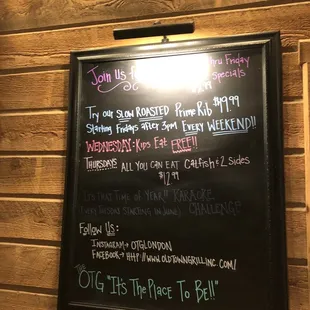 Join Us f Thru Friday
Specials
Try our SLOW ROASTED Prime Rib $19.99
Starting Fridays after 3pm EVERY WEEKEND!!
WEDNESDAY: Kids Eat FREE!!
THURSDAYS ALL YOU CAN EAT Catfish & 2 Sides
$12.99
Time of YEAR!! KARAOKE
CHALLENGE
Follow Us:
INSTAGRAM→ OTGLONDON
FACEBOOK→ HTTP://WWW.OLDTOWNGRILLINC.COM/
The OTG "It's The Place To Be!!"